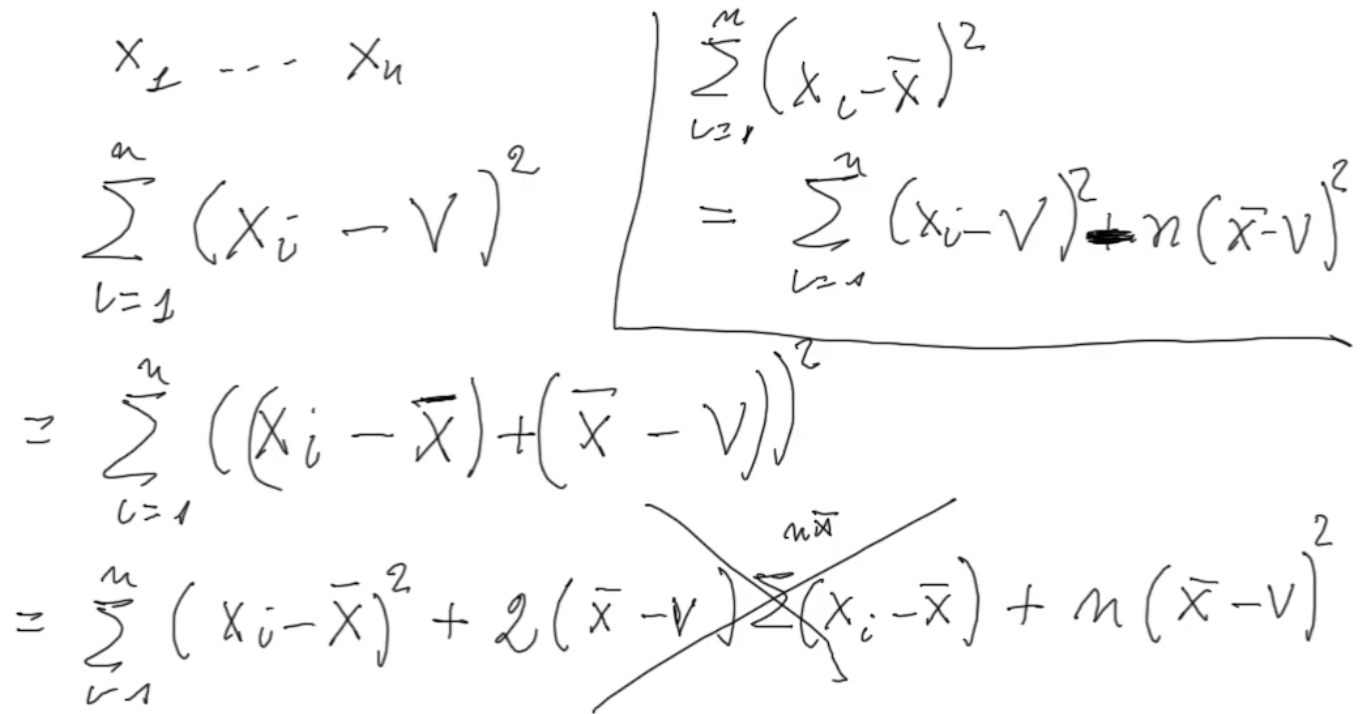 x₁ --- xₙ
∑ᵢ₌₁ⁿ (xᵢ − V)²
= ∑ᵢ₌₁ⁿ ((xᵢ − x̄) + (x̄ − V))²
= ∑ᵢ₌₁ⁿ (xᵢ − x̄)² + 2(x̄ − V) ∑(xᵢ − x̄) + n(x̄ − V)²
nx̄
∑ᵢ₌₁ⁿ (xᵢ − x̄)²
= ∑ᵢ₌₁ⁿ (xᵢ − V)² − n(x̄ − V)²